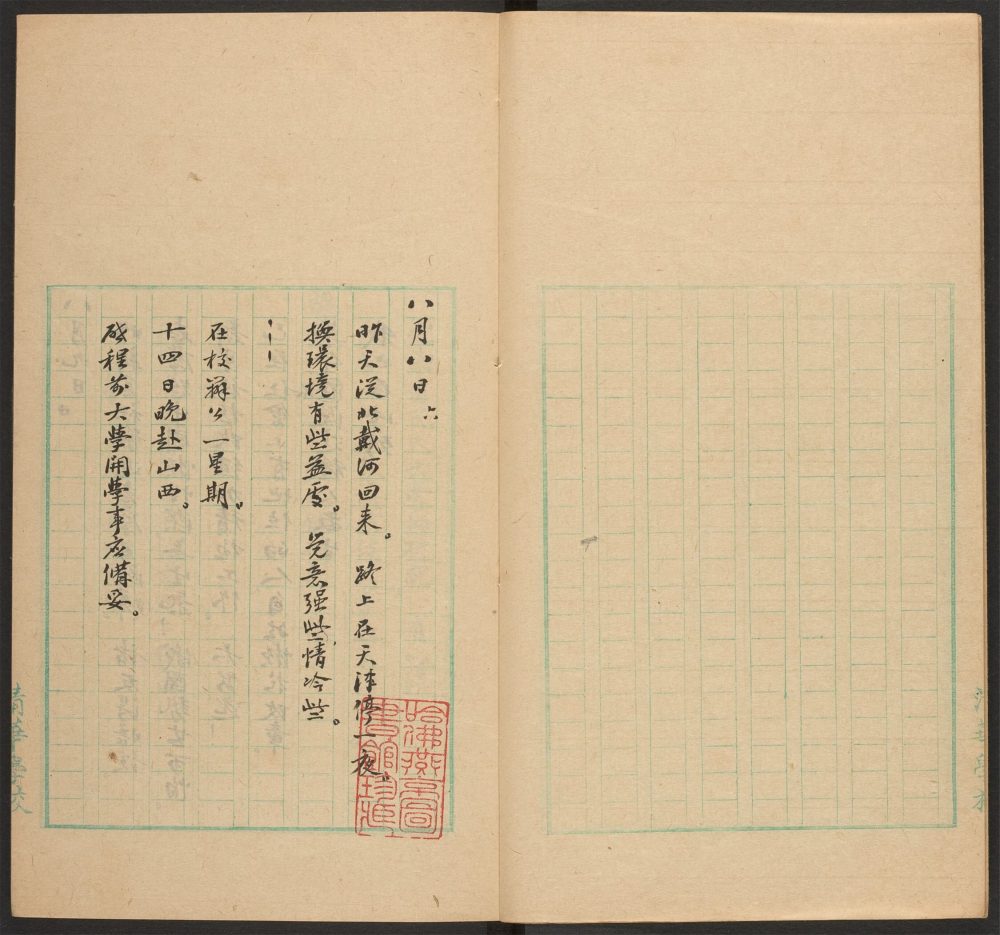 八月八日 六
昨天從北戴河回来。路上在天津停一夜。
換環境有些益處。覺意强些,情冷些。
在校辦公一星期。
十四日晚赴山西。
啟程前大學開學事应備妥。
哈佛燕京圖
書館珍藏
清華學校